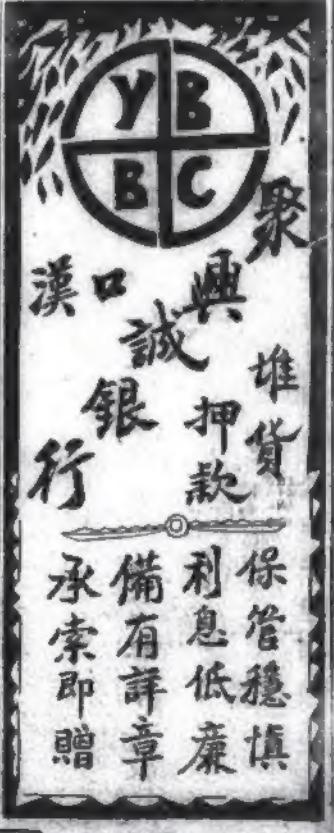 Y B
B C
漢口
聚興誠銀行
堆貨
押款
保管穩慎
利息低廉
備有詳章
承索即贈